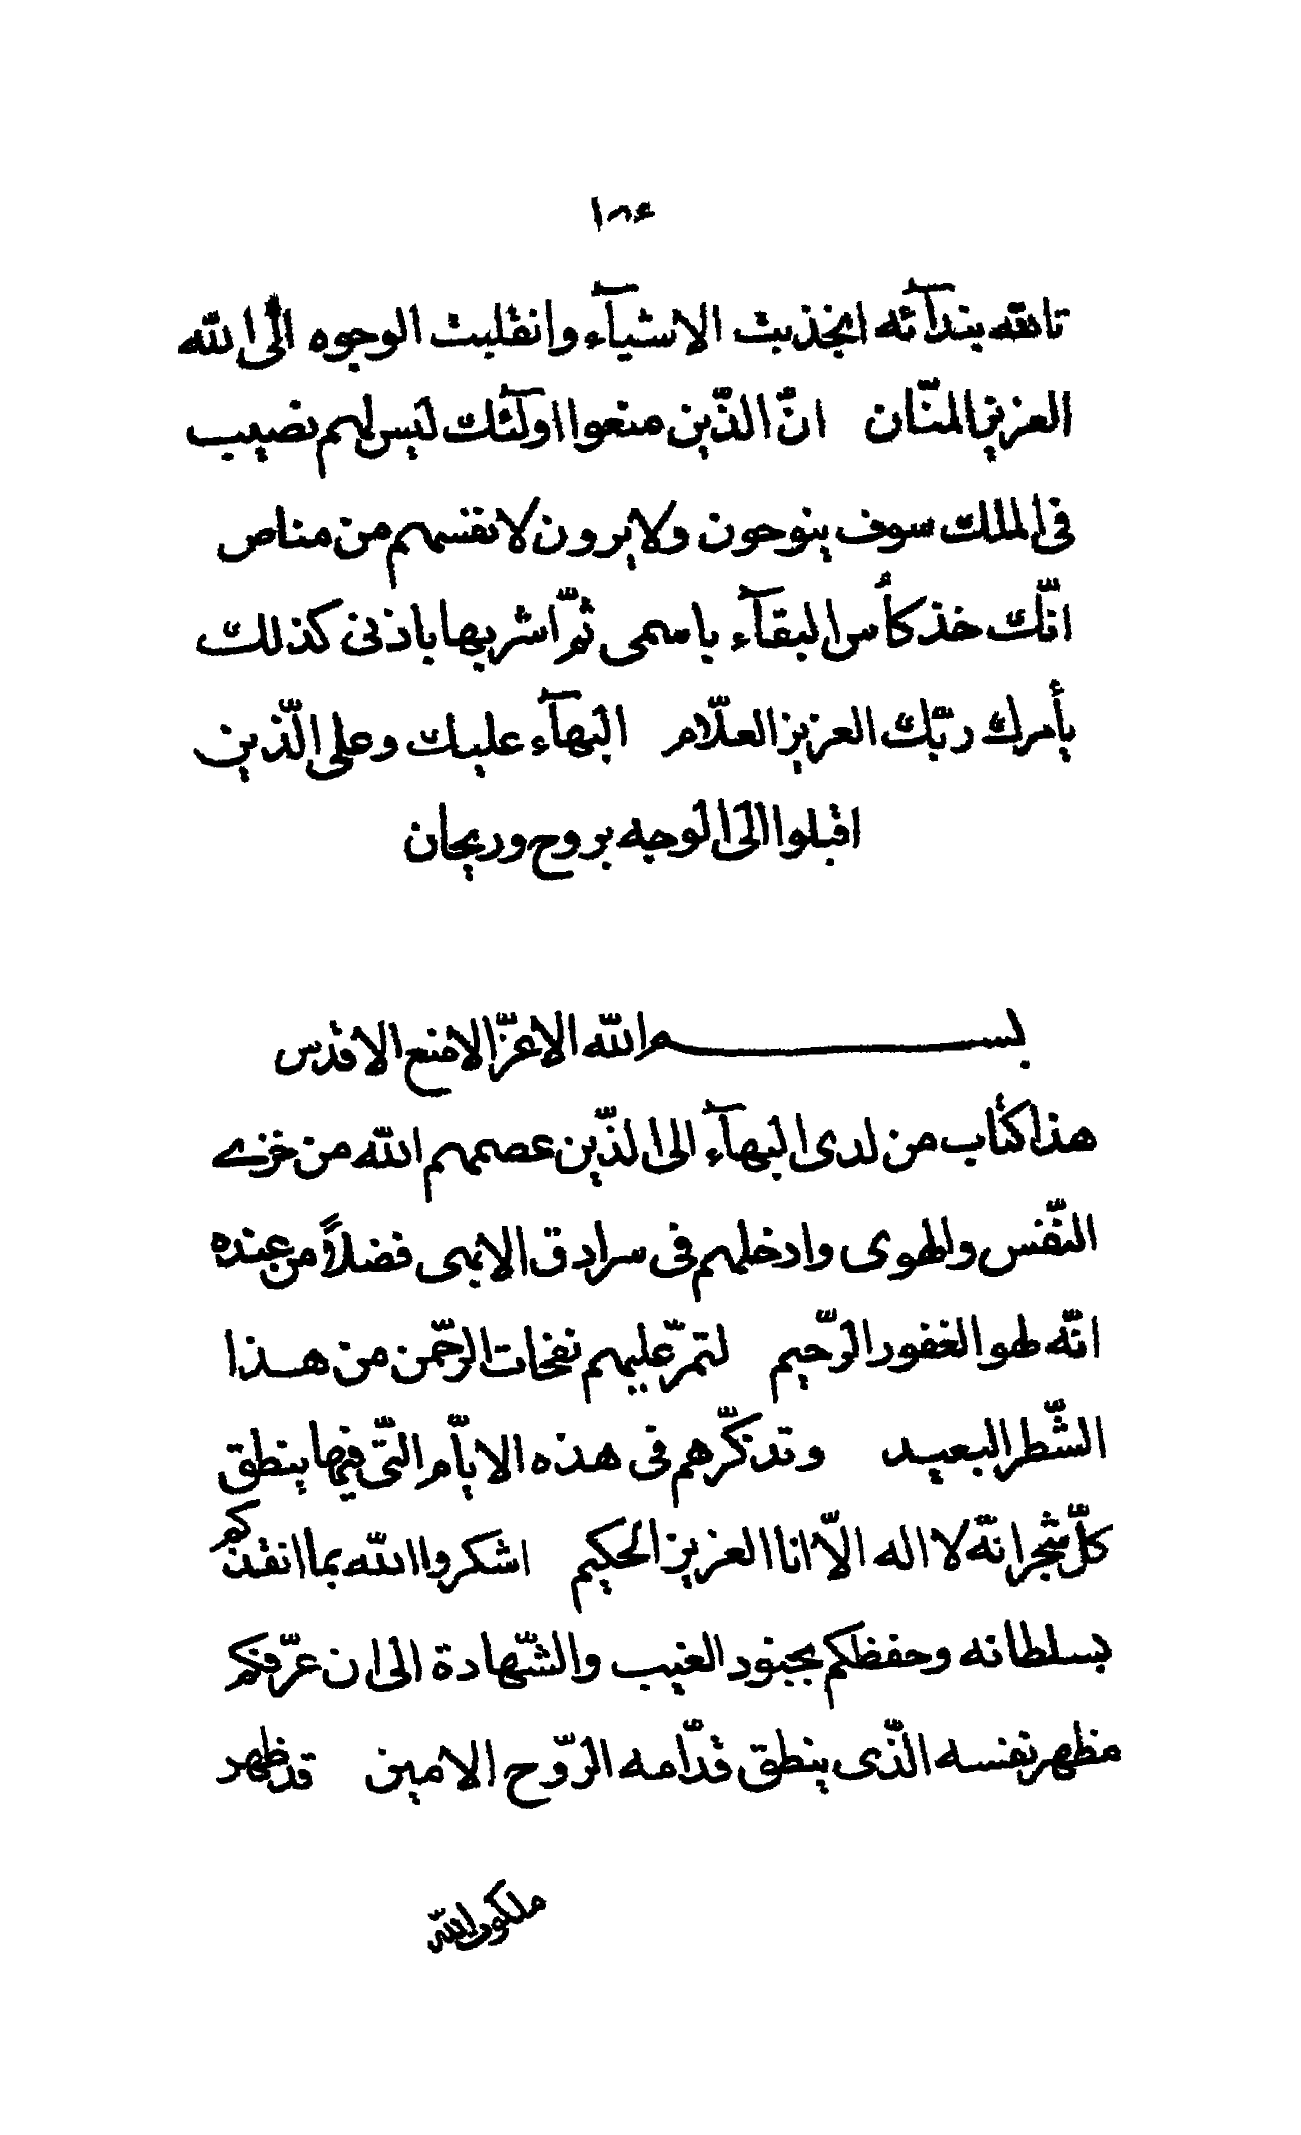 ١٨٤
تاﷲ بندآئه انجذبت الاشيآء وانقلبت الوجوه الى الله
العزيز المنّان انّ الّذين منعوا اولٓئك ليس لهم نصيب
فى الملك سوف ينوحون ولا يرون لانفسهم من مناص
انّك خذ كأس البقآء باسمى ثمّ اشربها باذنى كذلك
يأمرك ربّك العزيز العلّام البهآء عليك وعلى الّذين
اقبلوا الى الوجه بروح وريحان
بسم الله الاعزّ الامنع الاقدس
هذا كتاب من لدى البهآء الى الّذين عصمهم الله من خزى
النّفس والهوى وادخلهم فى سرادق الابهى فضلاً من عنده
انّه لهو الغفور الرّحيم لتمرّ عليهم نفحات الرّحمن من هذا
الشّطر البعيد وتذكّرهم فى هذه الايّام الّتى فيها ينطق
كلّ شجر انّه لا اله الّا انا العزيز الحكيم اشكروا الله بما انقذكم
بسلطانه وحفظكم بجنود الغيب والشّهادة الى ان عرّفكم
مظهر نفسه الّذى ينطق قدّامه الرّوح الامين قد ظهر
ملكوت الله